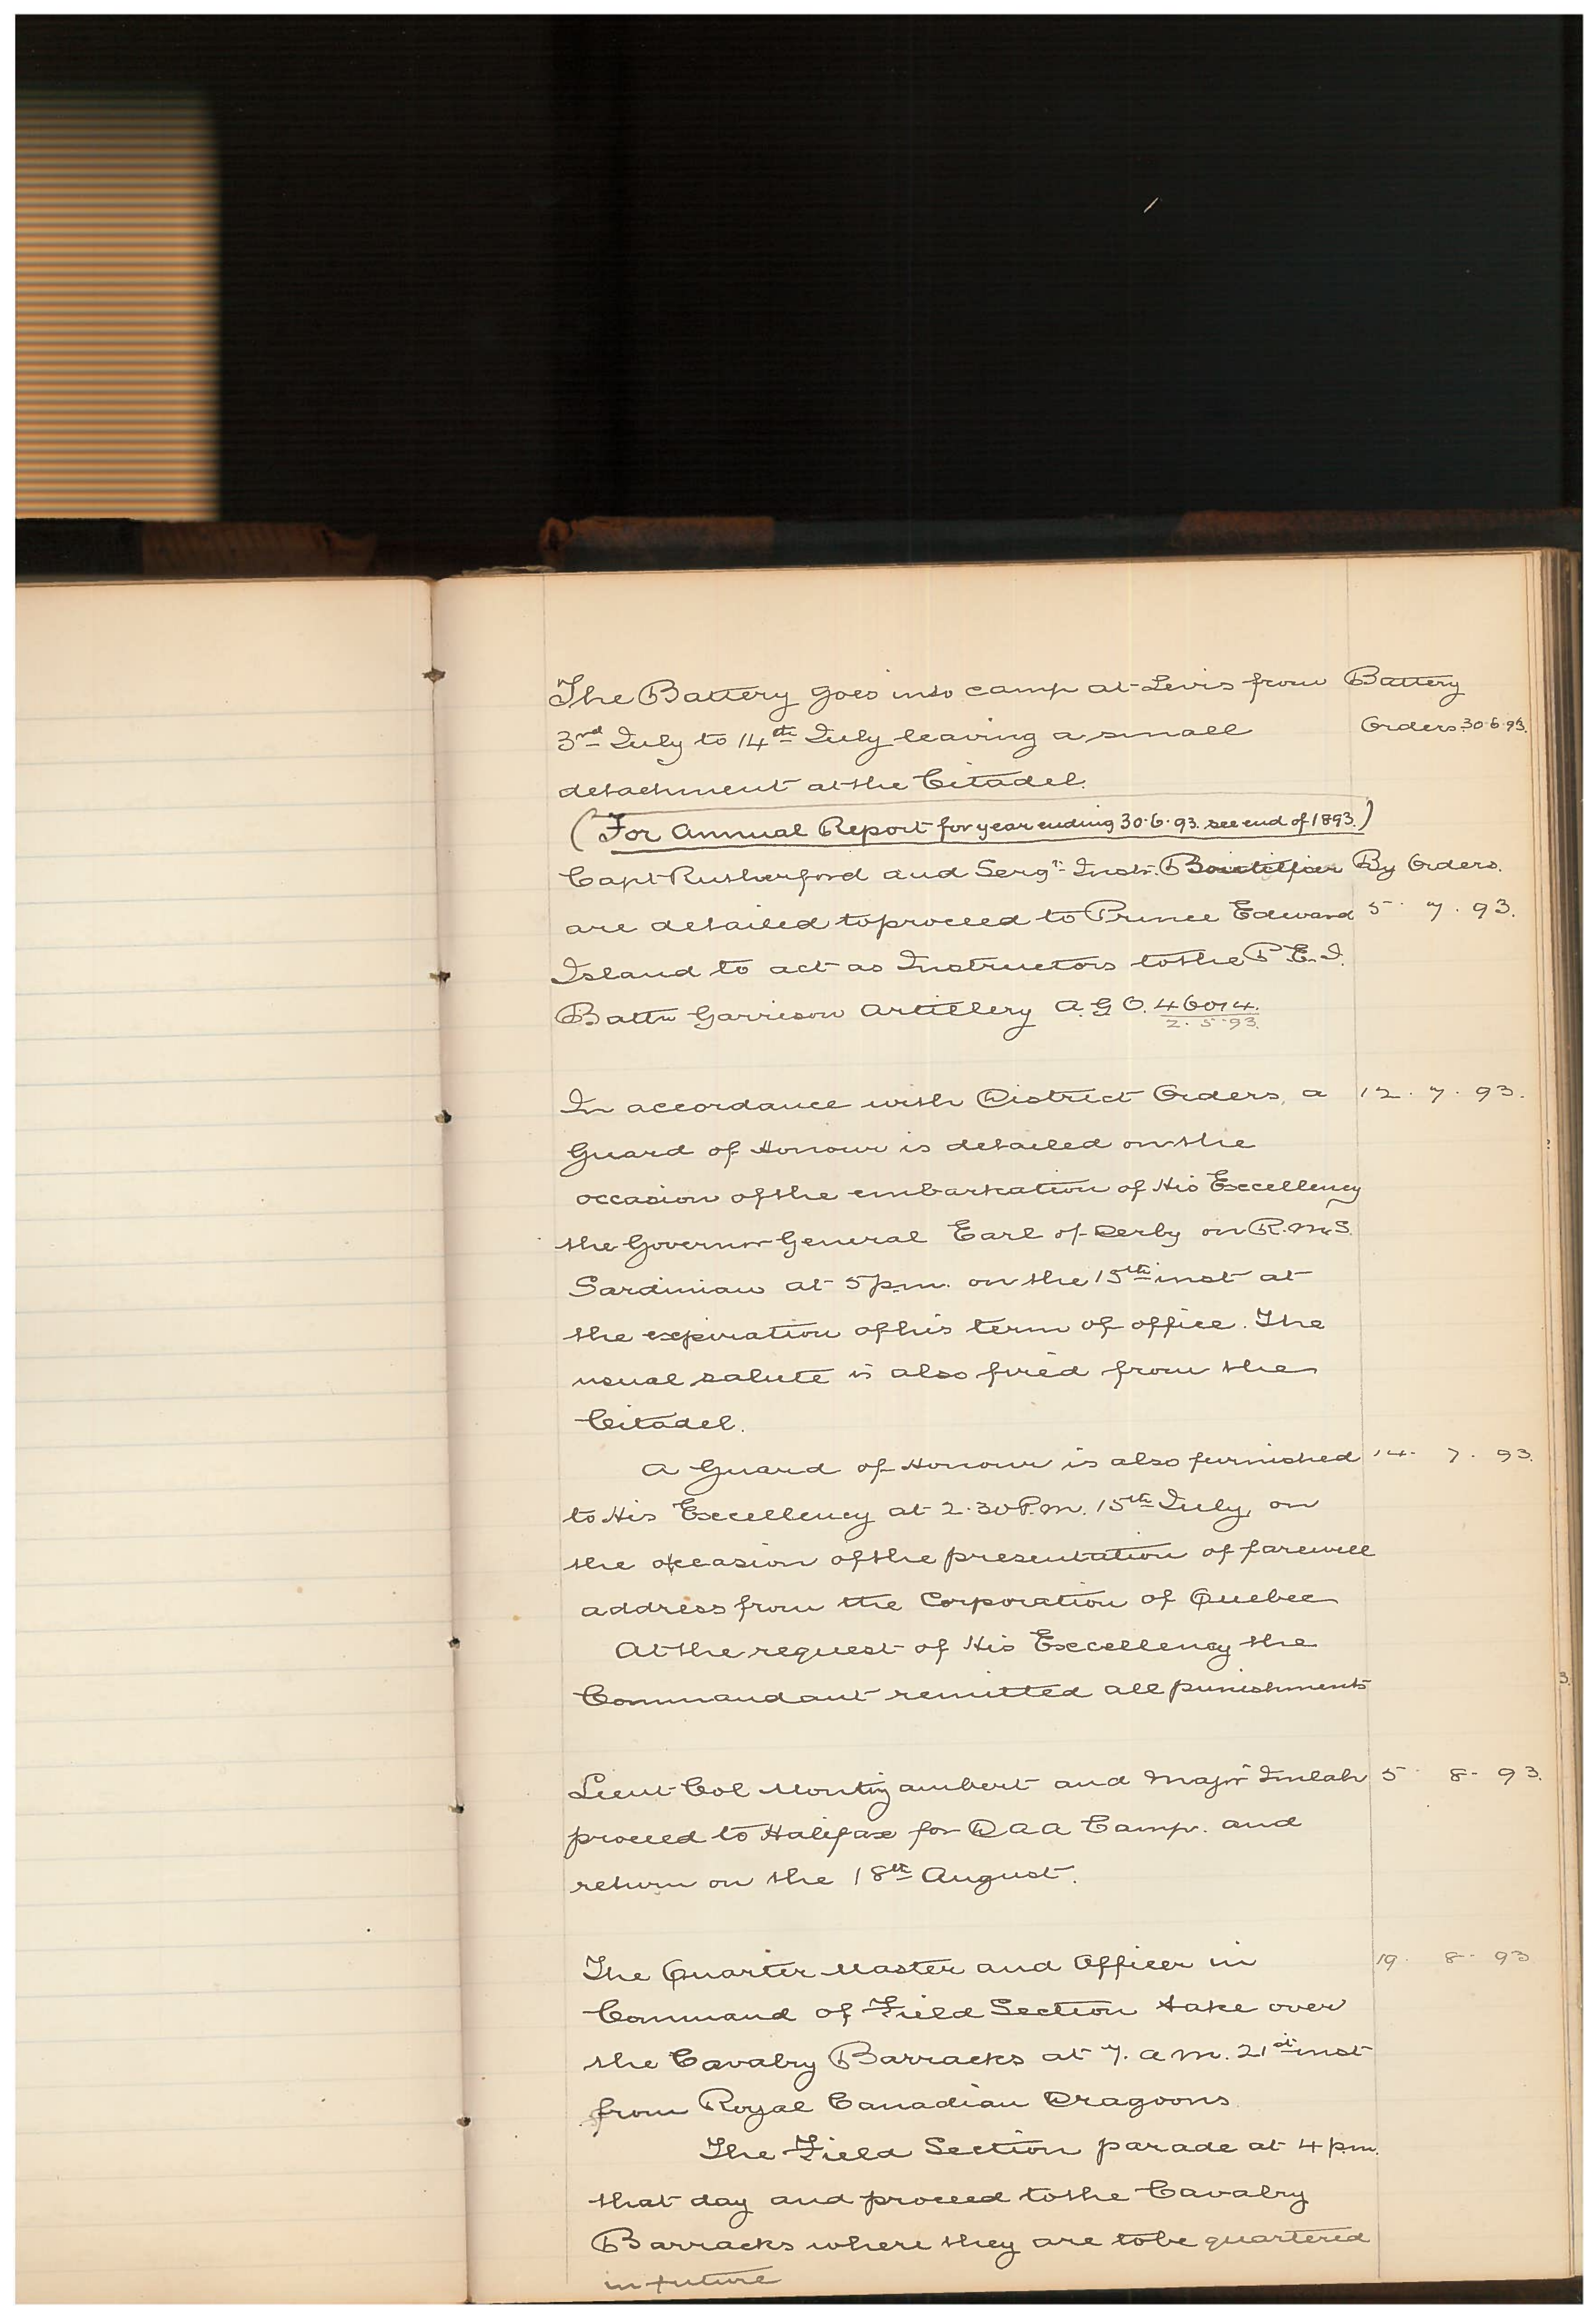 The Battery goes into camp at Levis from Battery
3rd July to 14th July leaving a small Orders 30.6.93.
detachment at the Citadel.
(For Annual Report for year ending 30.6.93. see end of 1893.)
Capt Rutherford and Sergt. Instr. By Orders.
are detailed to proceed to Prince Edward 5. 7. 93.
Island to act as Instructors to the P.E.I.
Battn Garrison Artillery A.G.O. 46014.
2. 5. 93.
In accordance with District Orders, a 12. 7. 93.
Guard of Honour is detailed on the
occasion of the embarkation of His Excellency
the Governor General Earl of Derby on R.M.S.
Sardinian at 5 p.m. on the 15th inst at
the expiration of his term of office. The
usual salute is also fired from the
Citadel.
A Guard of Honour is also furnished 14. 7. 93.
to His Excellency at 2.30 P.m. 15th July, on
the occasion of the presentation of farewell
address from the Corporation of Quebec
At the request of His Excellency the
Commandant remitted all punishments
Lieut Col Montizambert and Major Imlah 5. 8. 93.
proceed to Halifax for D A A Camp. and
return on the 18th August.
The Quarter Master and Officer in 19. 8. 93
Command of Field Section take over
the Cavalry Barracks at 7. a m. 21st inst
from Royal Canadian Dragoons
The Field Section parade at 4 p.m.
that day and proceed to the Cavalry
Barracks where they are to be quartered
in future